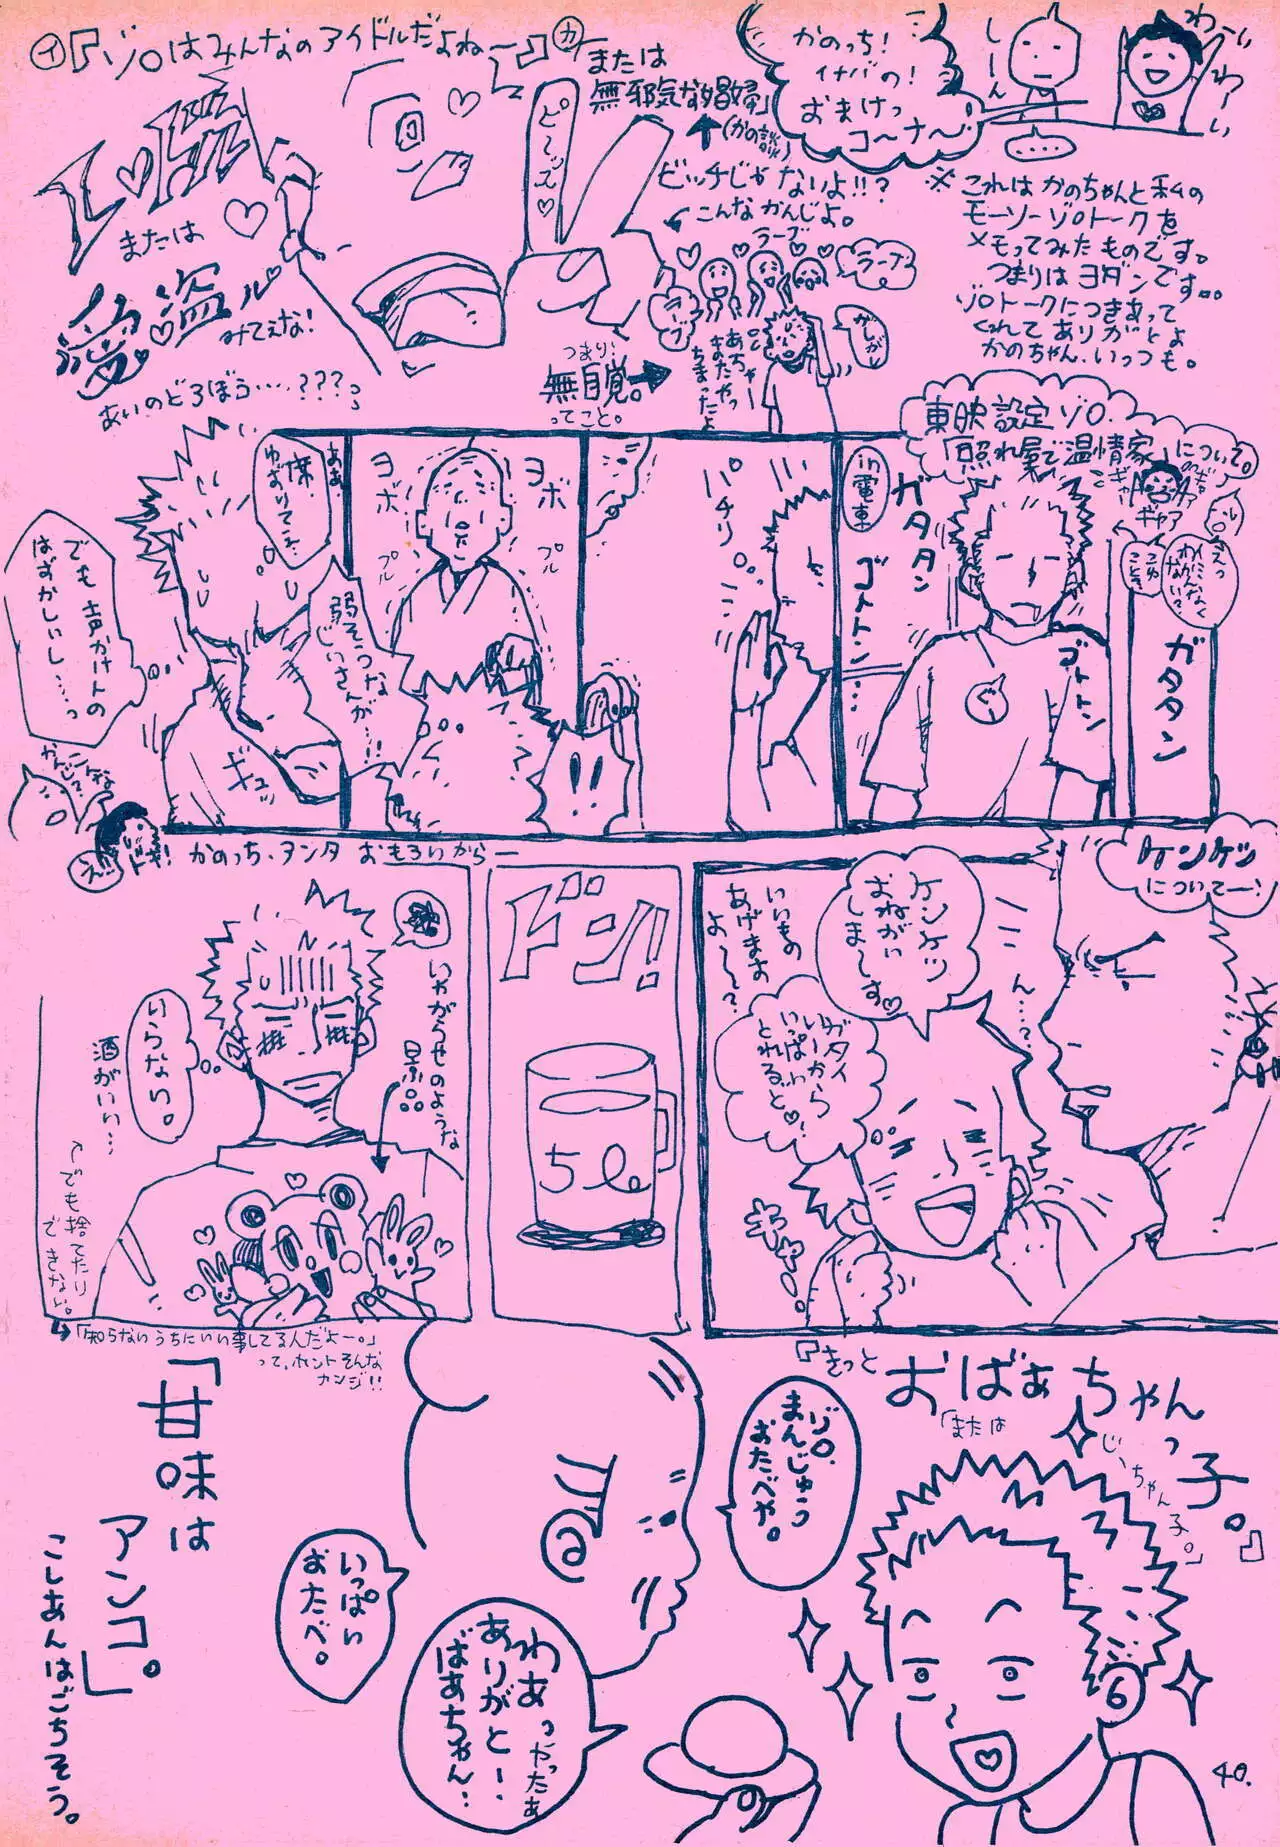 かのっち!
イナバの!
おまけっ
コ〜ナ〜
しーん
わーい
わーい
※これは かのちゃんと私の
モーソーゾロトークを
メモってみたものです。
つまりはヨダンです。
ゾロトークにつきあって
くれて ありがとよ
かのちゃん、いっつも。
イ『ゾロはみんなのアイドルだよねー』カ
または
無邪気な娼婦」
(かの談)
ピ〜ッス♡
または
愛盗ル
みてえな!
あいのどろぼう‥‥???
ビッチじゃないよ!!?
こんなかんじよ。
ラーブ
ラーブ
ラーブ
つまり:
無自覚。
ってこと。
あちゃー
またやっ
ちまったよ
東映設定ゾロ.
「照れ屋で温情家」について。
in電車
ガタタン
ゴトトン
ゴトトン
ガタタン
ぐ
パチリ
ヨボ
ヨボ
プル
プル
弱そうな
じいさんが‥!!
ああ、
席、
ゆずりてえ
でも声かけんの
はずかしいし‥‥っ
ギュッ
こんな
かんじで?
え!!
かのっち、アンタ おもろいからー
ケンケツ
についてー:
ん‥‥?
ケンケツ
おねがい
しま〜す♡
いいもの
あげます
よ〜〜?
ガタイ
いーから
いっぱい
とれるっと♡!
ドン!!
5ℓ
いやがらせのような
景品
いらない。
酒がいい‥
でも捨てたり
できない。
「知らないうちにいい事してる人だよー。」
って、ホントそんな
カンジ!!
『きっと
おばぁちゃんっ子。』
「または
じいちゃん子。」
ゾロ、
まんじゅう
おたべや。
いっぱい
おたべ。
わあっやったぁ
ありがと!
ばあちゃん!
「甘味は
アンコ」。
こしあんはごちそう。
40.